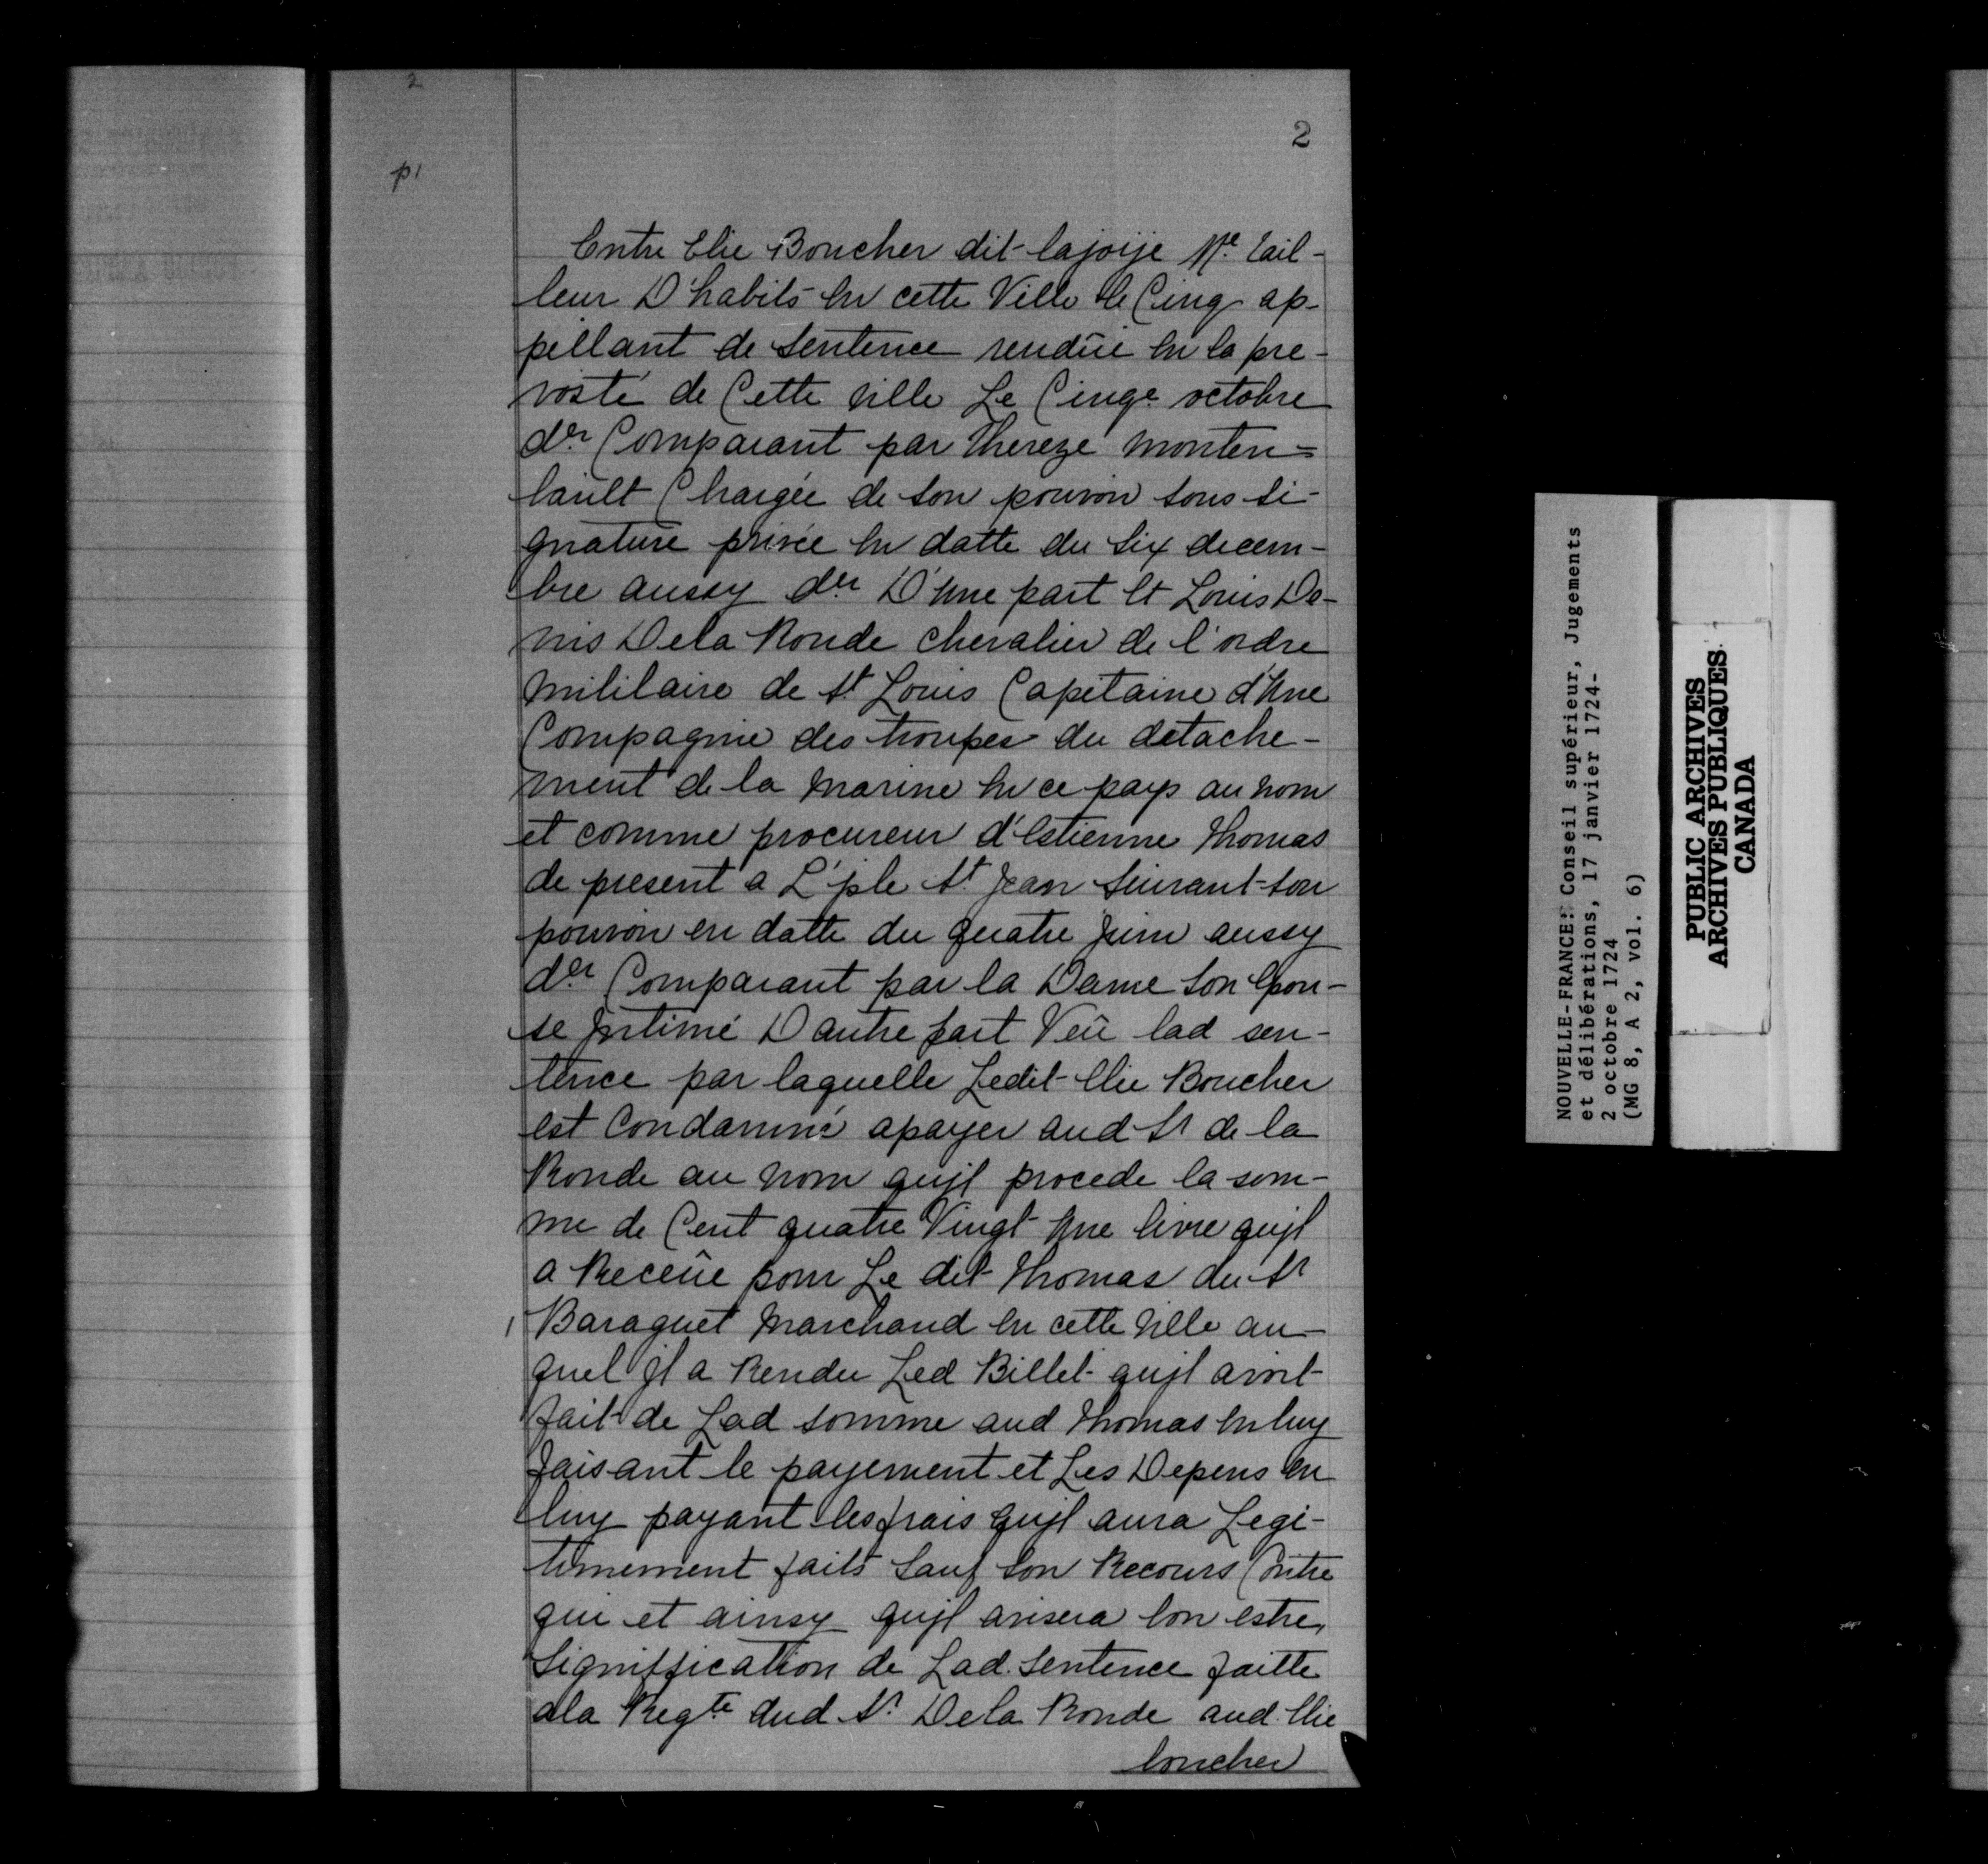 2
2
p1
Entre Elie Boucher dit lajoije Me. tail-
leur D'habits en cette Ville le Cinq ap-
pellant de Sentence rendüe en la pre-
vosté de Cette ville Le Cinqe octobre
der Comparant par thereze monten-
bault Chargée de son pouvoir sous si-
gnature privée en datte du Six decem-
bre aussy der D'Une part Et Louis De-
nis Dela Ronde chevalier de l'ordre
militaire de St Louis Capitaine d'Une
Compagnie des troupes du detache-
ment de la marine en ce pays au nom
et comme procureur d'Estienne thomas
de present a L'jsle St Jean Suivant son
pouvoir en datte du quatre Juin aussy
der Comparant par la Dame son Epou-
se Jntimé D autre part Veü lad sen-
tence par laquelle Ledit Elie Boucher
est Condamné apayer aud Sr de la
Ronde au nom qujl procede la som-
me de Cent quatre Vingt Une livre qujl
a Receüe pour Le dit thomas du Sr
Baraguet marchand en cette ville au-
quel Jl a Rendu Led Billet qujl avoit
fait de Lad somme aud thomas en luy
faisant le payement et Les Depens en
luy payant les frais qujl aura Legi-
timement faits Sauf son Recours Contre
qui et ainsy qujl avisera bon estre,
Signiffication de Lad. Sentence faitte
ala Reqte dud Sr. Dela Ronde aud. Elie
boucher
NOUVELLE-FRANCE: Conseil supérieur, Jugements
et délibérations, 17 janvier 1724-
2 octobre 1724
(MG 8, A 2, vol. 6)
PUBLIC ARCHIVES
ARCHIVES PUBLIQUES
CANADA